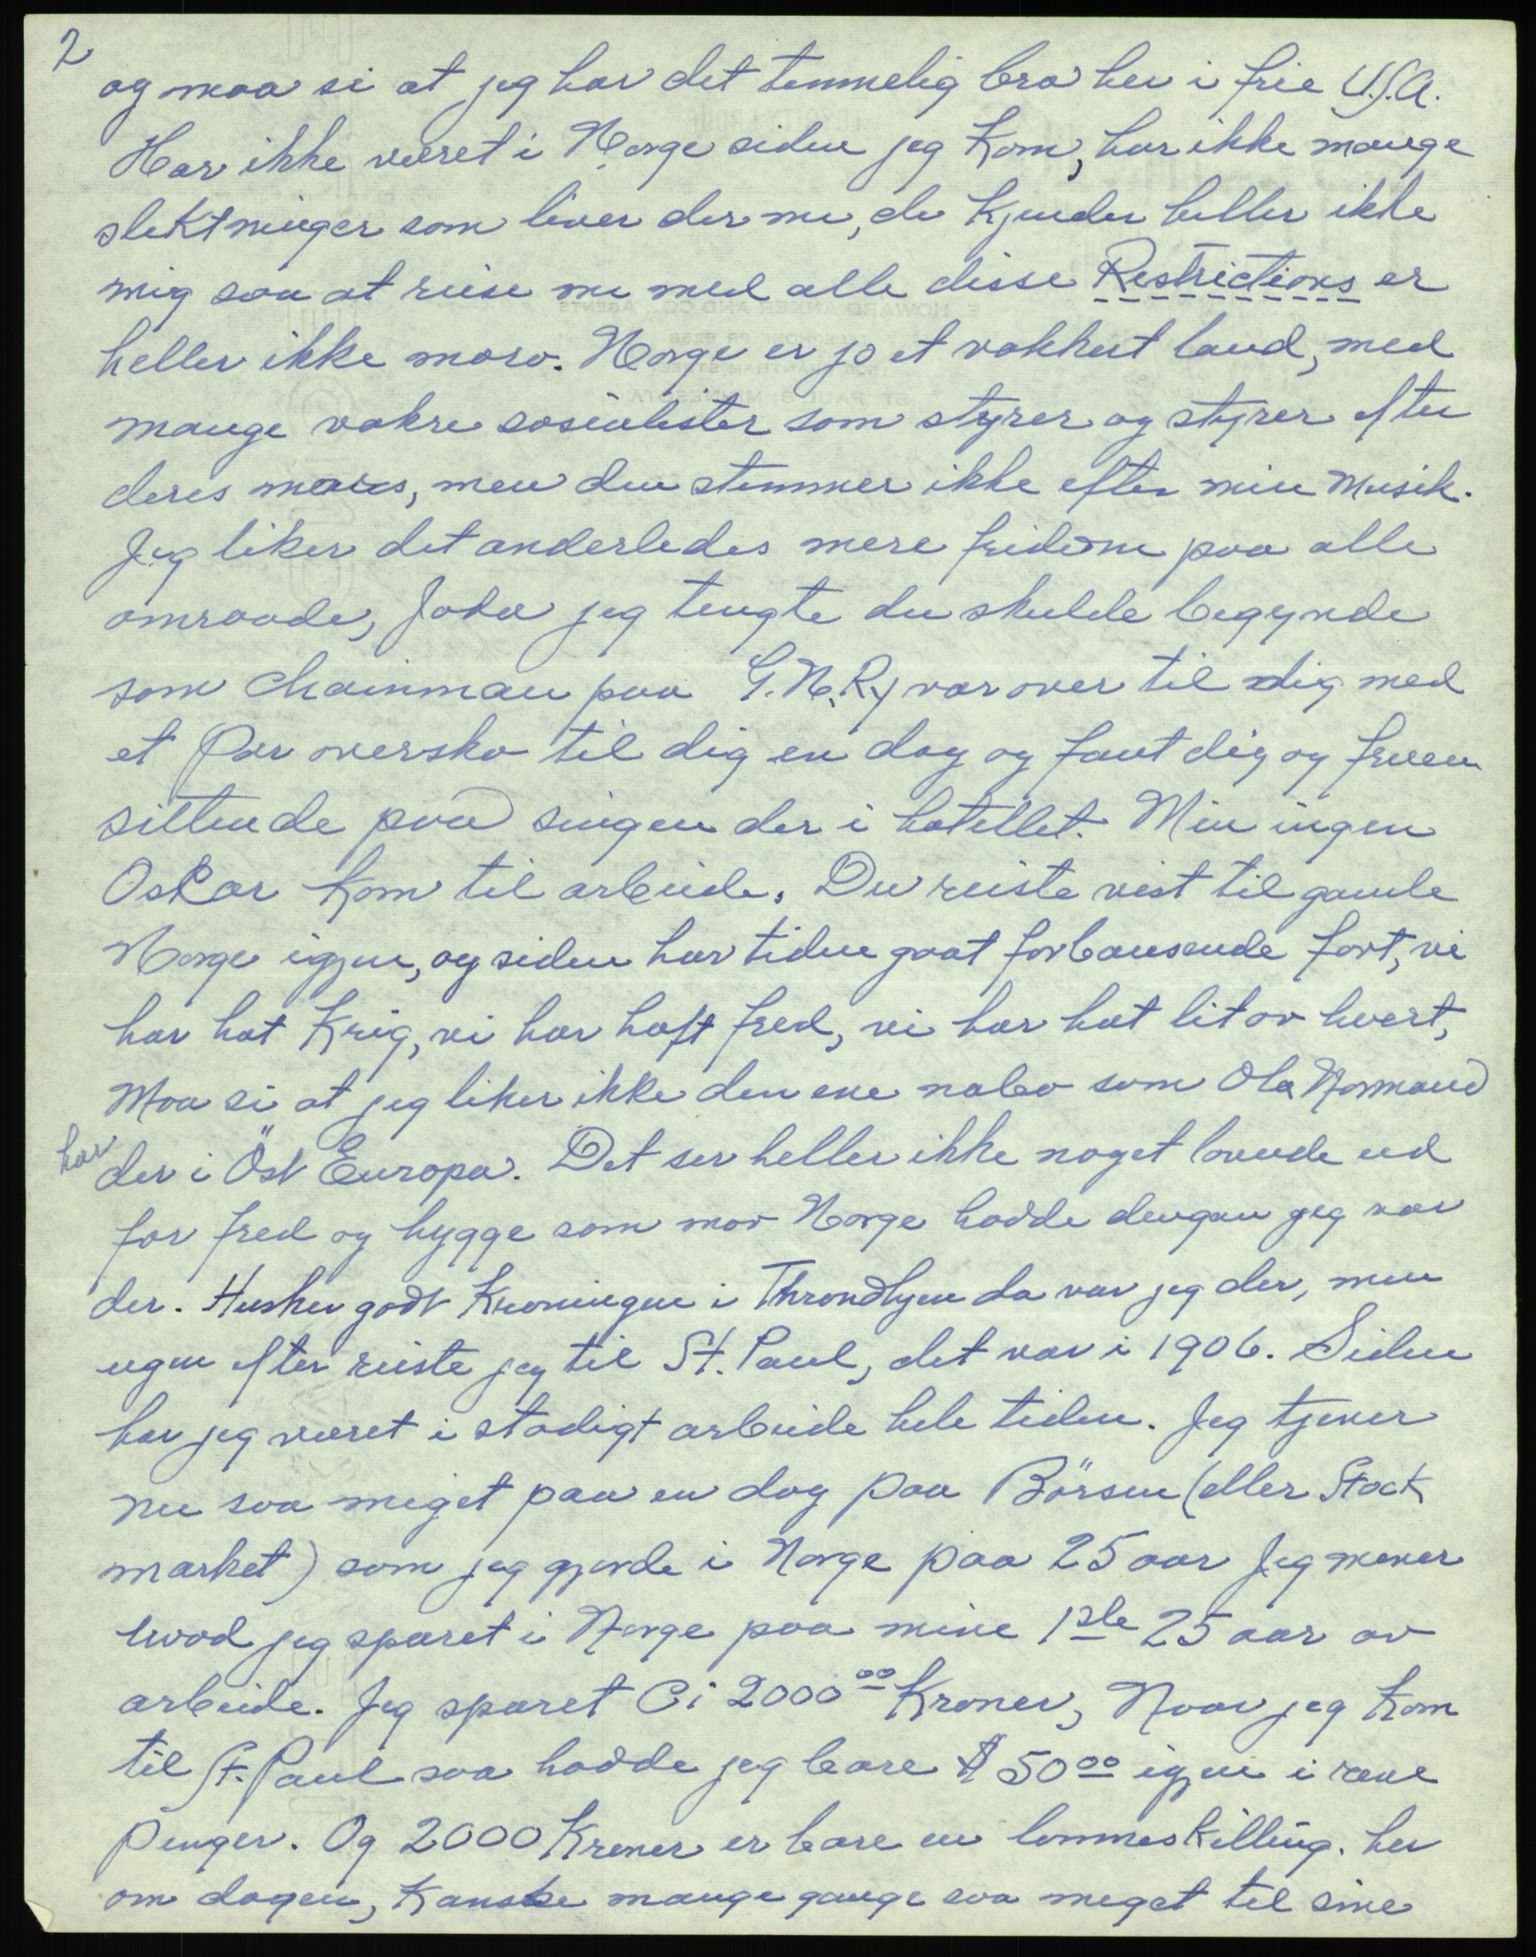 2
og maa si at jeg har det temmelig bra her i frie U.S.A.
Har ikke været i Norge siden jeg kom, har ikke mange
slektninger som liver der nu, de kjender heller ikke
mig saa at reise nu med alle disse Restrictions er
heller ikke moro. Norge er jo et vakkert land, med
mange vakre sosialister som styrer og styrer efter
deres manes, men den stemmer ikke efter min Musik.
Jeg liker det anderledes mere fridom paa alle
omraade, Joda jeg tengte du skulde begynde
som Chainman paa G.N.Ry var over til dig med
et Par oversko til dig en dag og fant dig og fruen
sittende paa sengen der i hotellet. Men ingen
Oskar kom til arbeide. Du reiste vist til gamle
Norge igjen, og siden har tiden gaat forbausende fort, vi
har hat Krig, vi har haft fred, vi har hat lit av hvert,
Maa si at jeg liker ikke den ene nabo som Ola Normand
har
der i Öst Europa. Det ser heller ikke noget lovende ud
for fred og hygge som mor Norge hadde dengan jeg var
der. Husker godt Kroningen i Throndhjem da var jeg der, men
ugen efter reiste jeg til St. Paul, det var i 1906. Siden
har jeg været i stadigt arbeide hele tiden. Jeg tjener
nu saa meget paa en dag paa Börsen (eller Stock
market) som jeg gjorde i Norge paa 25 aar Jeg mener
hvad jeg sparet i Norge paa mine 1ste 25 aar av
arbeide. Jeg sparet Ci 2000 00 Kroner, Naar jeg kom
til St. Paul saa hadde jeg bare $ 50 00 igjen i rene
Penger. Og 2000 Kroner er bare en lommeskilling. her
om dagen, Kanske mange gange saa meget til sine